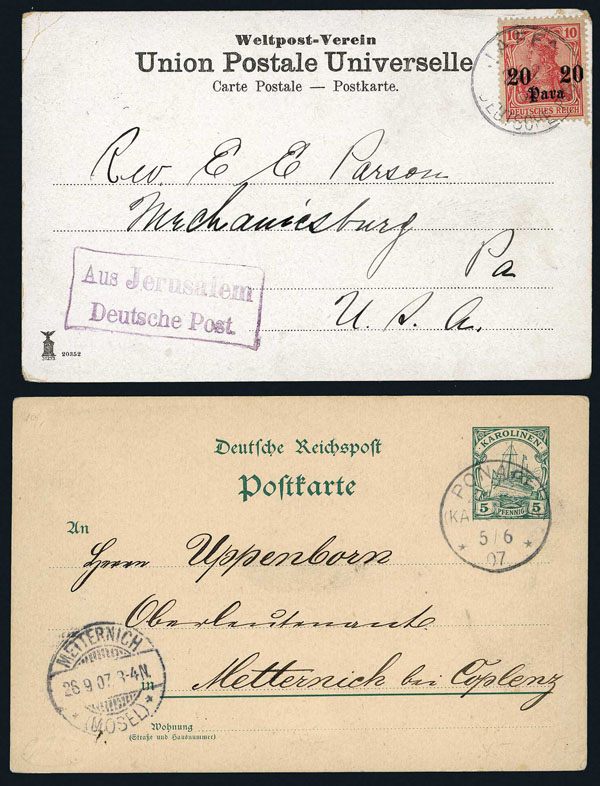 Weltpost-Verein
Union Postale Universelle
Carte Postale — Postkarte.
10 10
20 20
Para
DEUTSCHES REICH
JAFFA
DEUTSCHE
Rev E E Parson
Mechanicsburg
Pa
U. S. A.
Aus Jerusalem
Deutsche Post.
20352
Deutsche Reichspost
Postkarte
KAROLINEN
5 PFENNIG 5
PONAPE
KA
5/6
07
An
Herrn Uppenborn
Oberleutenant
in Metternich bei Coblenz
METTERNICH
26.9.07.3-4N.
(MOSEL)
Wohnung
(Straße und Hausnummer)